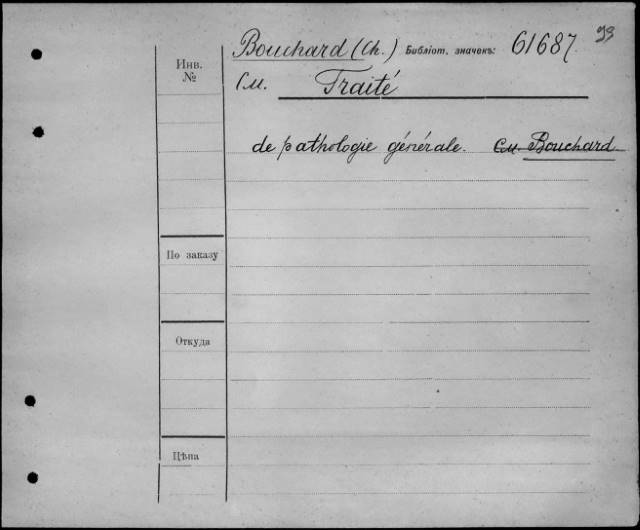 Bouchard (Ch.) Библіот. значекъ: 61687. 93
Инв. №
См. Traité
de pathologie générale. См. Bouchard.
По заказу
Откуда
Цѣна